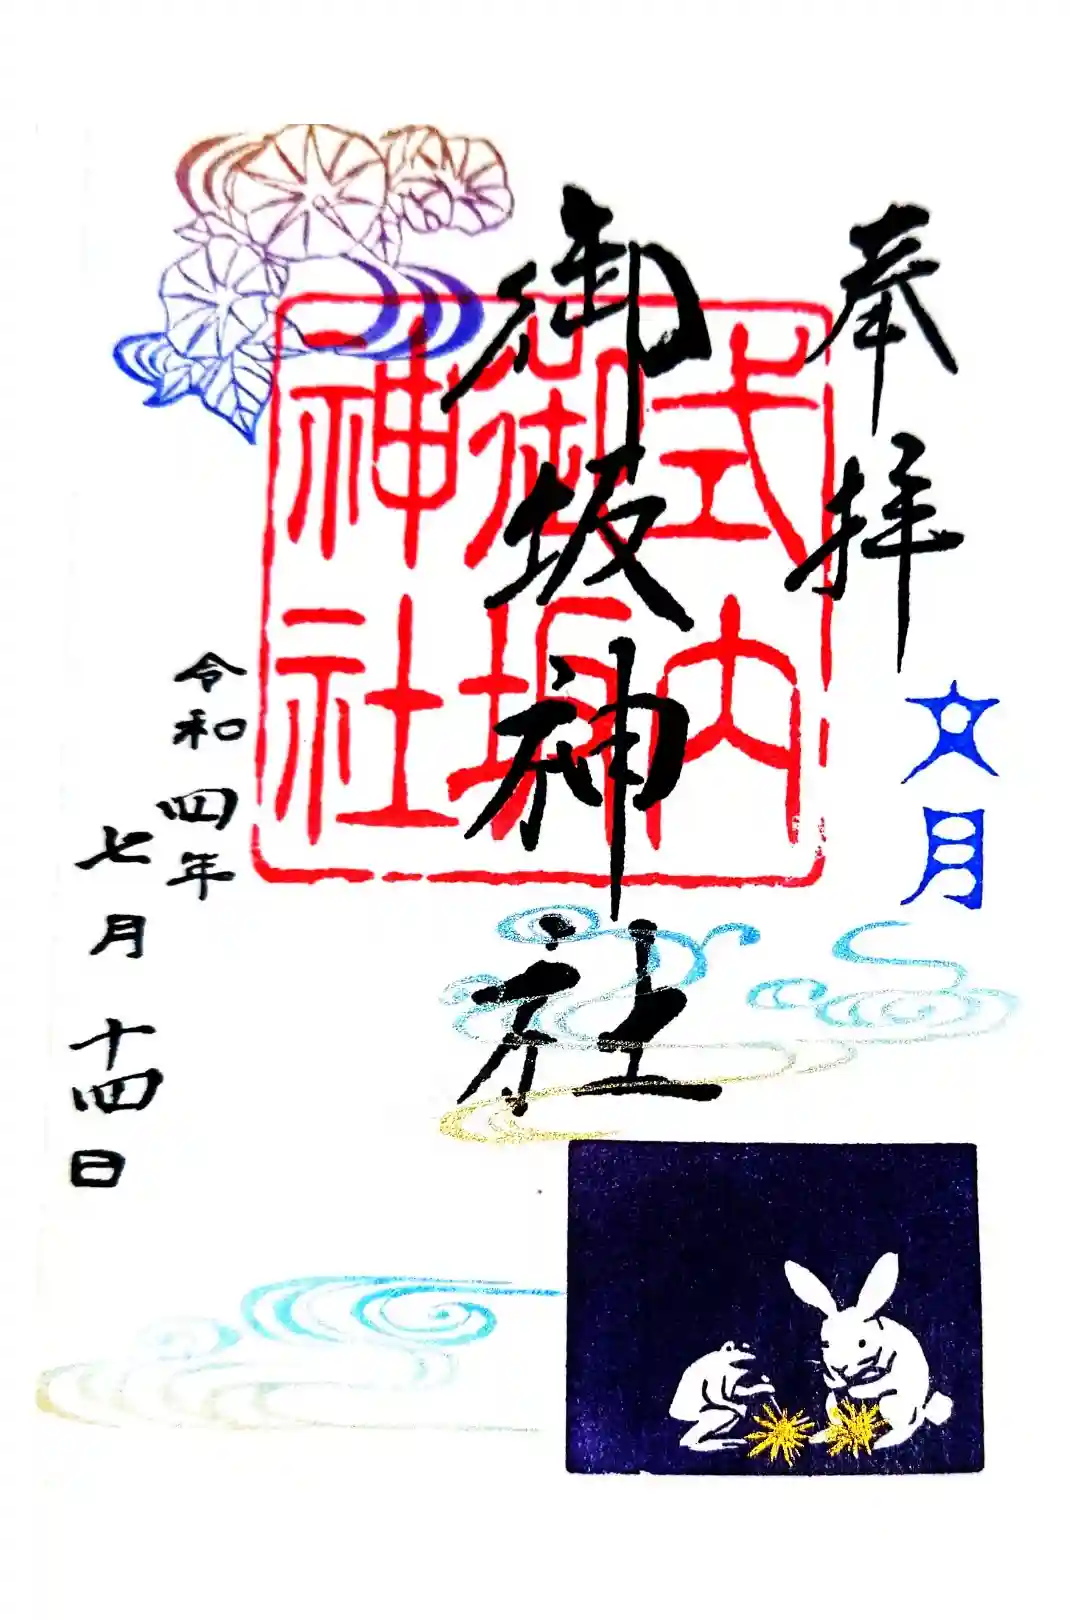 奉拝
文月
御坂神社
式内
御坂
神社
令和四年
七月十四日